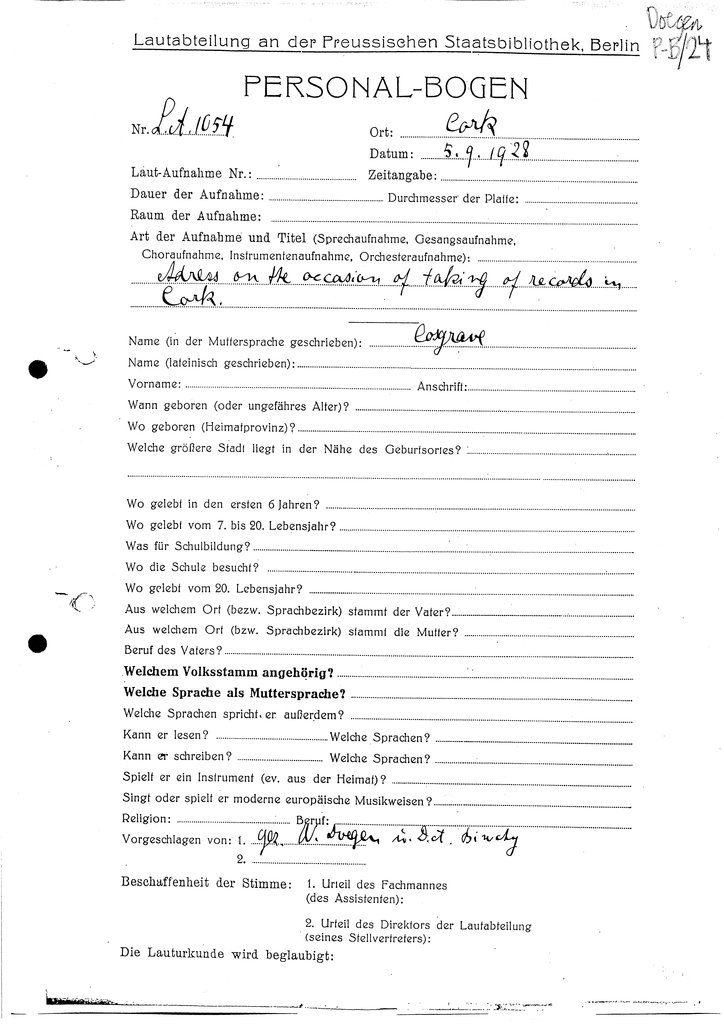 Doegen
P-B/24
Lautabteilung an der Preussischen Staatsbibliothek, Berlin
PERSONAL-BOGEN
Nr. L.A. 1054
Ort: Cork
Datum: 5. 9. 1928
Laut-Aufnahme Nr.: Zeitangabe:
Dauer der Aufnahme: Durchmesser der Platte:
Raum der Aufnahme:
Art der Aufnahme und Titel (Sprechaufnahme, Gesangsaufnahme,
Choraufnahme, Instrumentenaufnahme, Orchesteraufnahme):
Adress on the occasion of taking of records in
Cork.
Name (in der Muttersprache geschrieben): Cosgrave
Name (lateinisch geschrieben):
Vorname: Anschrift:
Wann geboren (oder ungefähres Alter)?
Wo geboren (Heimatprovinz)?
Welche größere Stadt liegt in der Nähe des Geburtsortes?
Wo gelebt in den ersten 6 Jahren?
Wo gelebt vom 7. bis 20. Lebensjahr?
Was für Schulbildung?
Wo die Schule besucht?
Wo gelebt vom 20. Lebensjahr?
Aus welchem Ort (bezw. Sprachbezirk) stammt der Vater?
Aus welchem Ort (bzw. Sprachbezirk) stammt die Mutter?
Beruf des Vaters?
Welchem Volksstamm angehörig?
Welche Sprache als Muttersprache?
Welche Sprachen spricht er außerdem?
Kann er lesen? Welche Sprachen?
Kann er schreiben? Welche Sprachen?
Spielt er ein Instrument (ev. aus der Heimat)?
Singt oder spielt er moderne europäische Musikweisen?
Religion: Beruf:
Vorgeschlagen von: 1. gez. W. Doegen u.
2.
Beschaffenheit der Stimme: 1. Urteil des Fachmannes
(des Assistenten):
2. Urteil des Direktors der Lautabteilung
(seines Stellvertreters):
Die Lauturkunde wird beglaubigt: